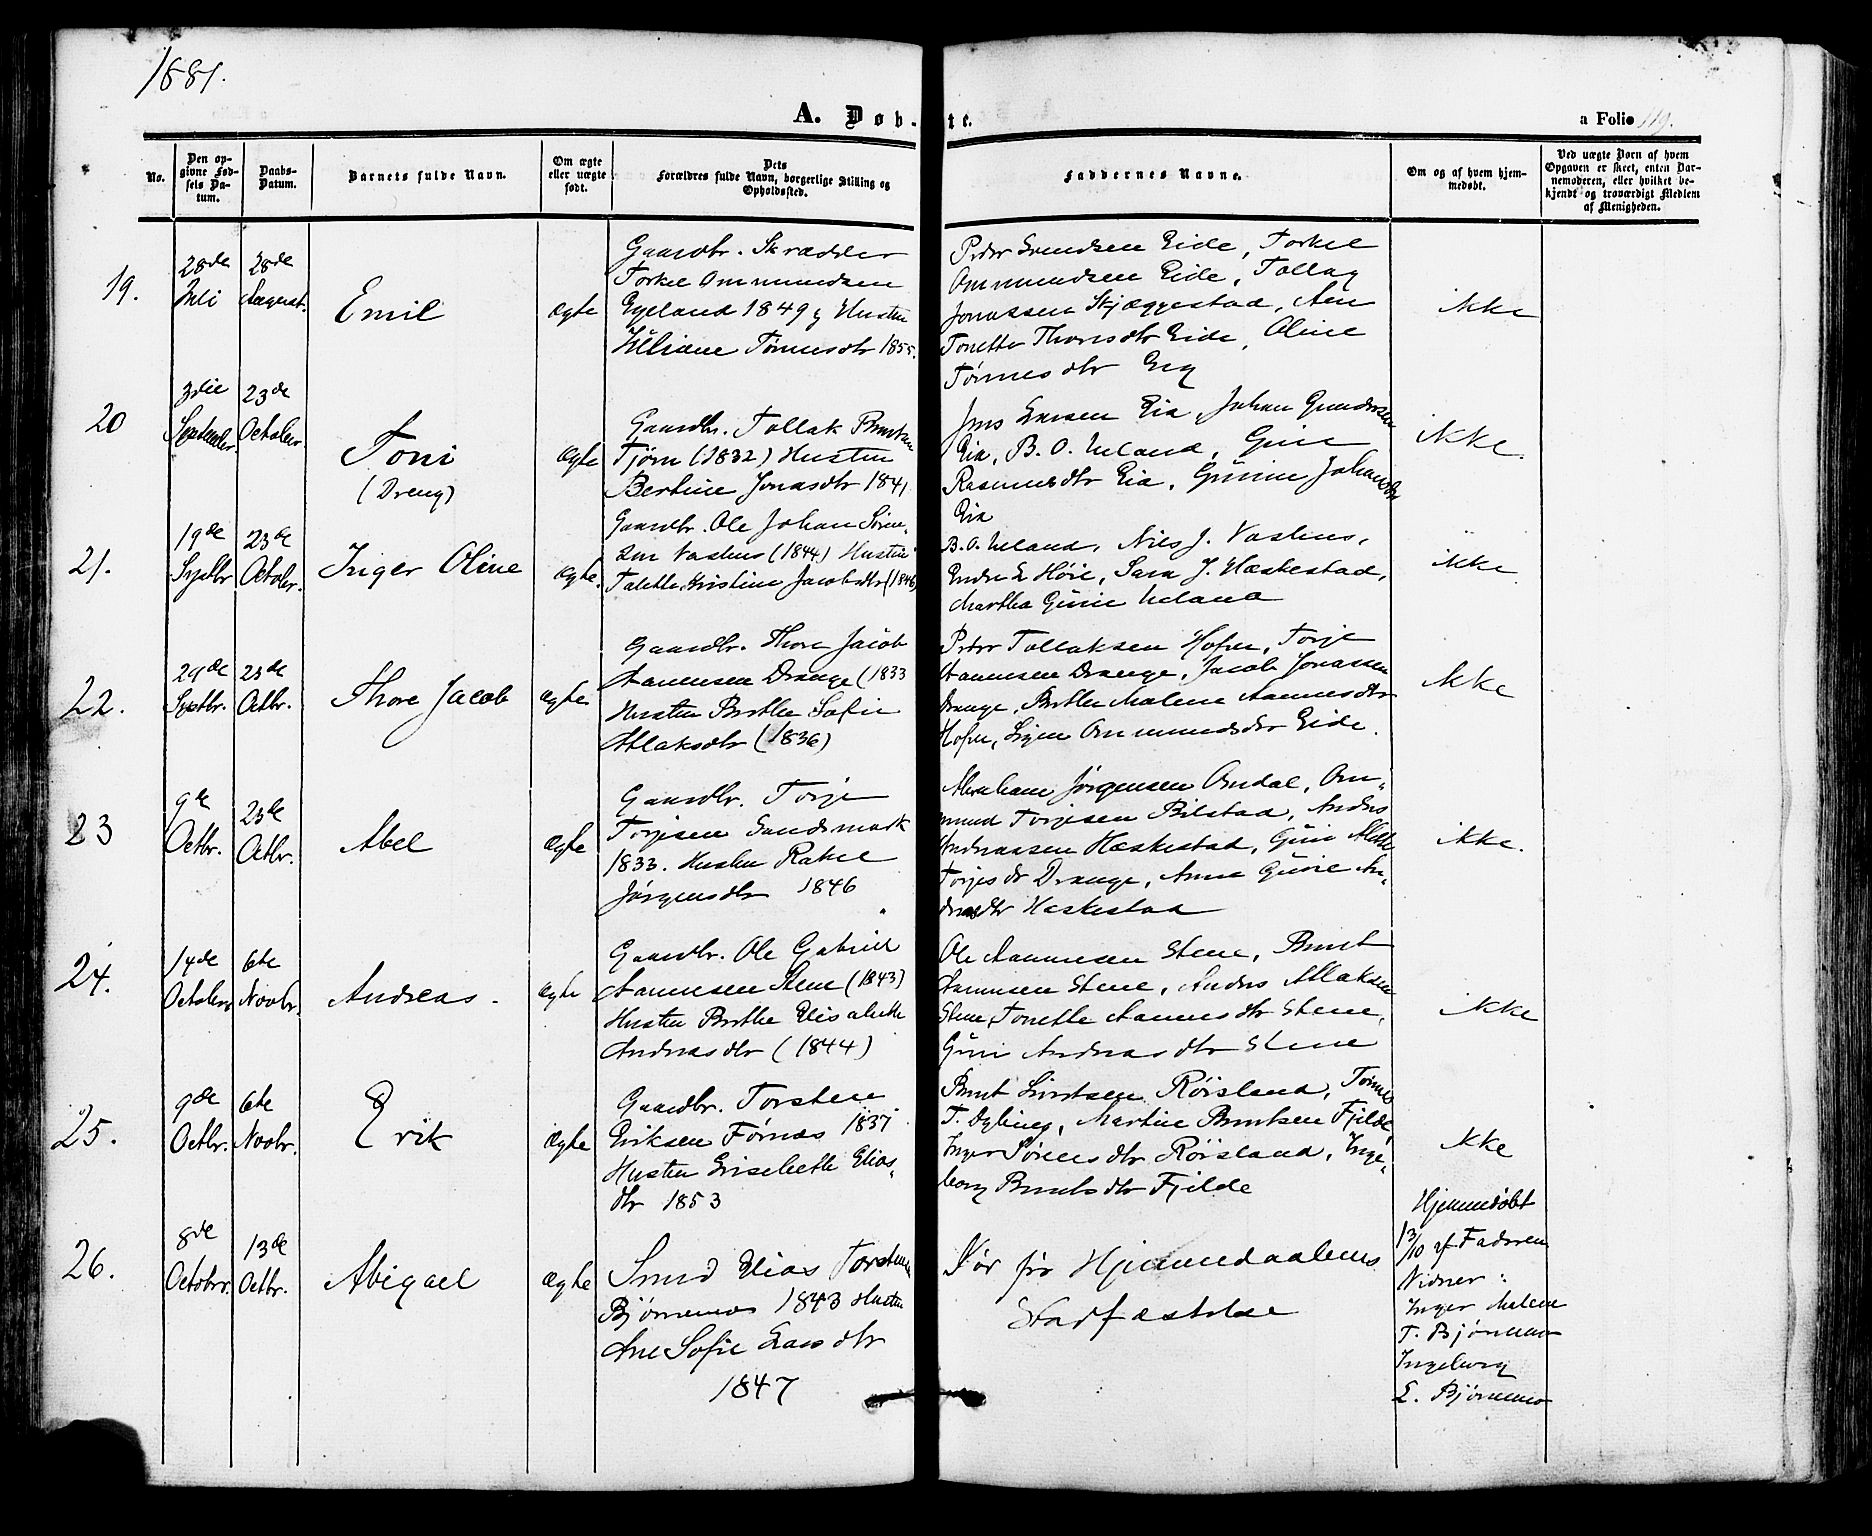 1881.
A. Døbte.
a Folio 119.
No.
Den opgivne Fødsels Datum.
Daabs-Datum.
Barnets fulde Navn.
Om ægte eller uægte født.
Dets Forældres fulde Navn, borgerlige Stilling og Opholdssted.
Faddernes Navne.
Om og af hvem hjemmedøbt.
Ved uægte Børn af hvem Opgaven er skeet, enten Barnemoderen, eller hvilket bekjendt og troværdigt Medlem af Menigheden.
19.
28de Juli
28de August.
Emil
ægte
Gaardbr. Skrædder
Torkel Ommundsen
Egeland 1849 & Hustru
Juliane Tønnesdtr 1855.
Peder Svendsen Eide, Torkel
Ommundsen Eide, Tollag
Jonassen Skjæggestad, Ane
Tonette Thorsdtr Eide, Oline
Tønnesdtr Eeg
ikke
20
3die September
23de October
Toni
(Dreng)
ægte
Gaardbr. Tollak Berntsen
Tjørn (1832) Hustru
Bertine Jonasdtr 1841
Jens Larsen Eia, Johan Gundersen
Eia, B. O. Ueland, Gurie
Rasmusdtr Eia, Gurine Johansdtr
Eia
ikke.
21.
19de Septbr
23de Octobr.
Inger Oline
ægte.
Gaardbr. Ole Johan Søren-
sen Vashus (1844) Hustru
Talette Kristine Jacobsdtr (1846)
B. O. Ueland, Nils J. Vashus,
Endre E Høie, Sara J. Hæskestad,
Martha Gurie Ueland
ikke
22.
29de Septbr.
23de Octbr.
Thore Jacob
ægte
Gaardbr. Thore Jacob
Aanensen Drange (1833
Hustru Berthe Sofie
Atlaksdtr (1836)
Peder Tollaksen Hofre, Torje
Aanensen Drange, Jacob Jonassen
Drange, Berthe Malene Aanensdtr
Hofre, Ommundsdtr Eide.
ikke
23
9de Octbr.
23de Octbr.
Abel
ægte
Gaardbr. Torje
Torjesen Sandsmark
1833. Hustru Rakel
Jørgensdtr 1846
Abraham Jørgensen Omdal, Om-
mund Torjesen Bilstad, Andreas
Andreassen Hæskestad, Guri Mette
Torjesdr Drange, Anne Gurie An-
dreasdtr Hæskestad
ikke.
24.
14de October
6te Novbr.
Andreas.
ægte
Gaardbr. Ole Gabriel
Aanensen Stene (1843)
Hustru Berthe Elisabeth
Andreasdtr (1844)
Ole Aanensen Stene, Bernt
Aanensen Stene, Andreas Atlaksen
Stene, Tonette Aanensdtr Stene,
Guri Andreasdtr Stene
ikke
25.
9de Octbr.
6te Novbr.
Erik
ægte
Gaardbr. Torsten
Eriksen Førnæs 1837
Hustru Lisebeth Elias-
dtr 1853
Bernt Sivertsen Røisland, Tønnes
T. Dybing, Martin Berntsen Fjelde,
Inger Sørensdtr Røisland, Inge-
borg Berntsdtr Fjelde
ikke
26.
8de October.
13de Octbr.
Abigael
ægte
Smed Elias Torstensen
Bjørnemo 1843 Hustru
Ane Sofie Larsdtr
1847
Dør før Hjemmedaabens
Stadfæstelse
Hjemmedøbt
13/10 af Faderen
Vidner:
Inger Malene
T. Bjørnemo
Ingeborg
E. Bjørnemo